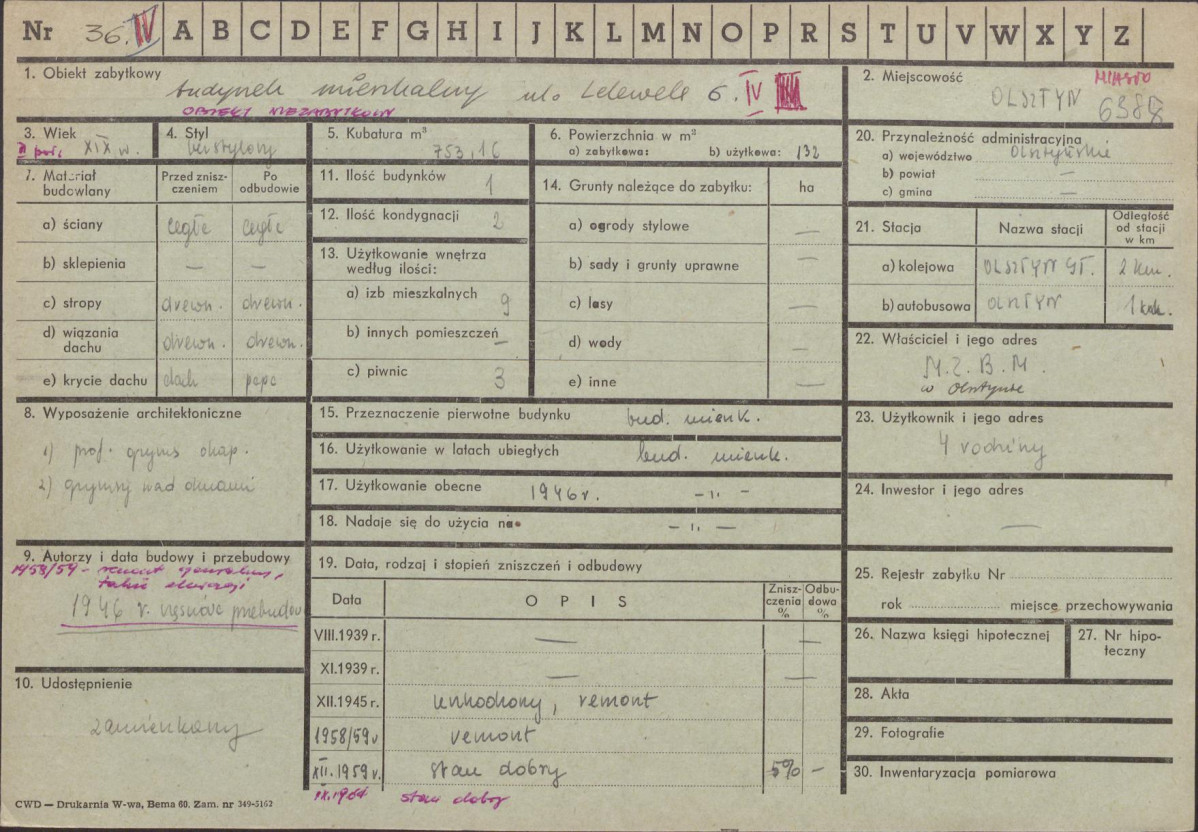 Nr 36. IV A B C D E F G H I J K L M N O P R S T U V W X Y Z
1. Obiekt zabytkowy
budynek mieszkalny ul. Lelewela 6. IV
OBIEKT NIEZABYTKOWY
2. Miejscowość
MIASTO
OLSZTYN
3. Wiek
II poł. XIX w.
4. Styl
bezstylowy
5. Kubatura m³
753,16
6. Powierzchnia w m²
a) zabytkowa: b) użytkowa: 132
20. Przynależność administracyjna
a) województwo Olsztyńskie
b) powiat —
c) gmina —
7. Materiał budowlany
Przed zniszczeniem
Po odbudowie
a) ściany cegła cegła
b) sklepienia — —
c) stropy drewn. drewn.
d) wiązania dachu drewn. drewn.
e) krycie dachu dach papa
11. Ilość budynków 1
12. Ilość kondygnacji 2
13. Użytkowanie wnętrza według ilości:
a) izb mieszkalnych 9
b) innych pomieszczeń —
c) piwnic 3
14. Grunty należące do zabytku: ha
a) ogrody stylowe —
b) sady i grunty uprawne —
c) lasy —
d) wody —
e) inne —
21. Stacja
Nazwa stacji
Odległość od stacji w km
a) kolejowa OLSZTYN GŁ. 2 km.
b) autobusowa OLSZTYN 1 km.
22. Właściciel i jego adres
M.Z.B.M.
w Olsztynie
8. Wyposażenie architektoniczne
1) prof. gzyms okap.
2) gzymsy nad oknami
15. Przeznaczenie pierwotne budynku bud. mieszk.
16. Użytkowanie w latach ubiegłych bud. mieszk.
17. Użytkowanie obecne 1946 r. -"-
18. Nadaje się do użycia na -"-
23. Użytkownik i jego adres
4 rodziny
24. Inwestor i jego adres
—
9. Autorzy i data budowy i przebudowy
1958/59 - remont
1946 r. częściowa przebudow
19. Data, rodzaj i stopień zniszczeń i odbudowy
Data OPIS Zniszczenia % Odbudowa %
VIII.1939 r. — —
XI.1939 r. — —
XII.1945 r. uszkodzony, remont
1958/59 r remont
XII.1959 r. stan dobry 5% —
IX.1964 stan dobry
25. Rejestr zabytku Nr
rok miejsce przechowywania
26. Nazwa księgi hipotecznej
27. Nr hipoteczny
10. Udostępnienie
zamieszkany
28. Akta
29. Fotografie
30. Inwentaryzacja pomiarowa
CWD — Drukarnia W-wa, Bema 60. Zam. nr 349-5162